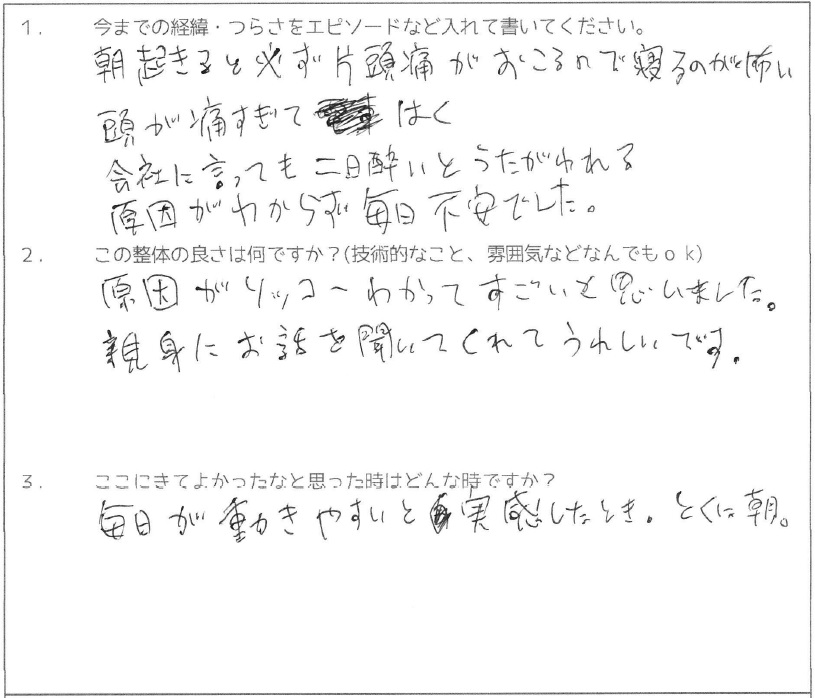 1. 今までの経緯・つらさをエピソードなど入れて書いてください。
朝起きると必ず片頭痛がおこるので寝るのが怖い
頭が痛すぎて はく
会社に言っても二日酔いとうたがわれる
原因がわからず毎日不安でした。
2. この整体の良さは何ですか？(技術的なこと、雰囲気などなんでもok)
原因がソッコーわかってすごいと思いました。
親身にお話を聞いてくれてうれしいです。
3. ここにきてよかったなと思った時はどんな時ですか？
毎日が動きやすいと実感したとき。とくに朝。